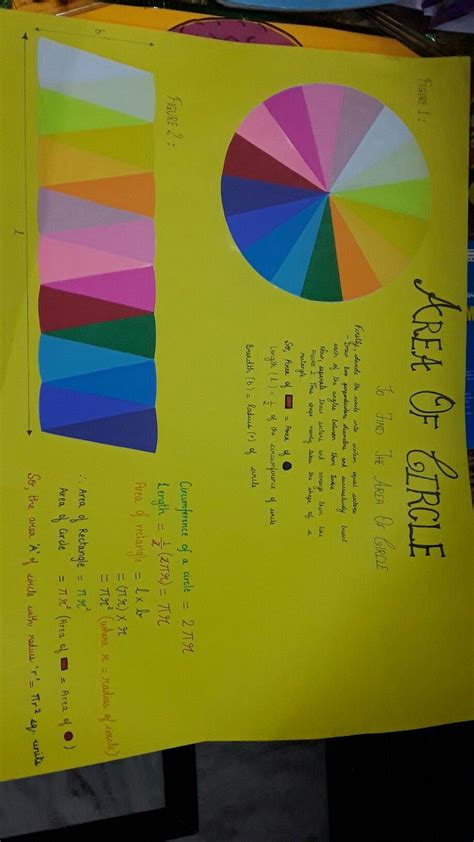 AREA OF CIRCLE
TO FIND THE AREA OF CIRCLE
FIGURE 1:
Firstly, divide the circle into sixteen equal sectors
- Draw two perpendicular diameters and successively bisect
each of the angles between them twice
Now, separate these sectors and arrange them like
figure 2. This shape nearly takes the shape of a
rectangle.
So, Area of = Area of
Length (l) = 1/2 of the circumference of circle
Breadth (b) = Radius (r) of circle
FIGURE 2:
b
l
Circumference of a circle = 2πr
Length = 1/2 (2πr) = πr
Area of rectangle = l x b
= (πr) x r
= πr² (where r = radius of circle)
∴ Area of Rectangle = πr²
Area of Circle = πr² (Area of = Area of )
So, the area 'A' of circle with radius 'r' = πr² sq. units